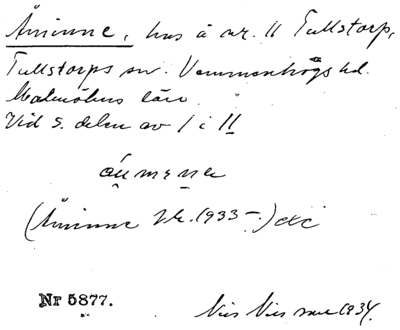 Åminne, hus å nr. 11 Tullstorp,
Tullstorps sn. Vemmenhögs hd.
Malmöhus län.
Vid S. delen av 1 i 11
(Åminne 1933-)
Nr 5877.
Nils Nilsson 1934.